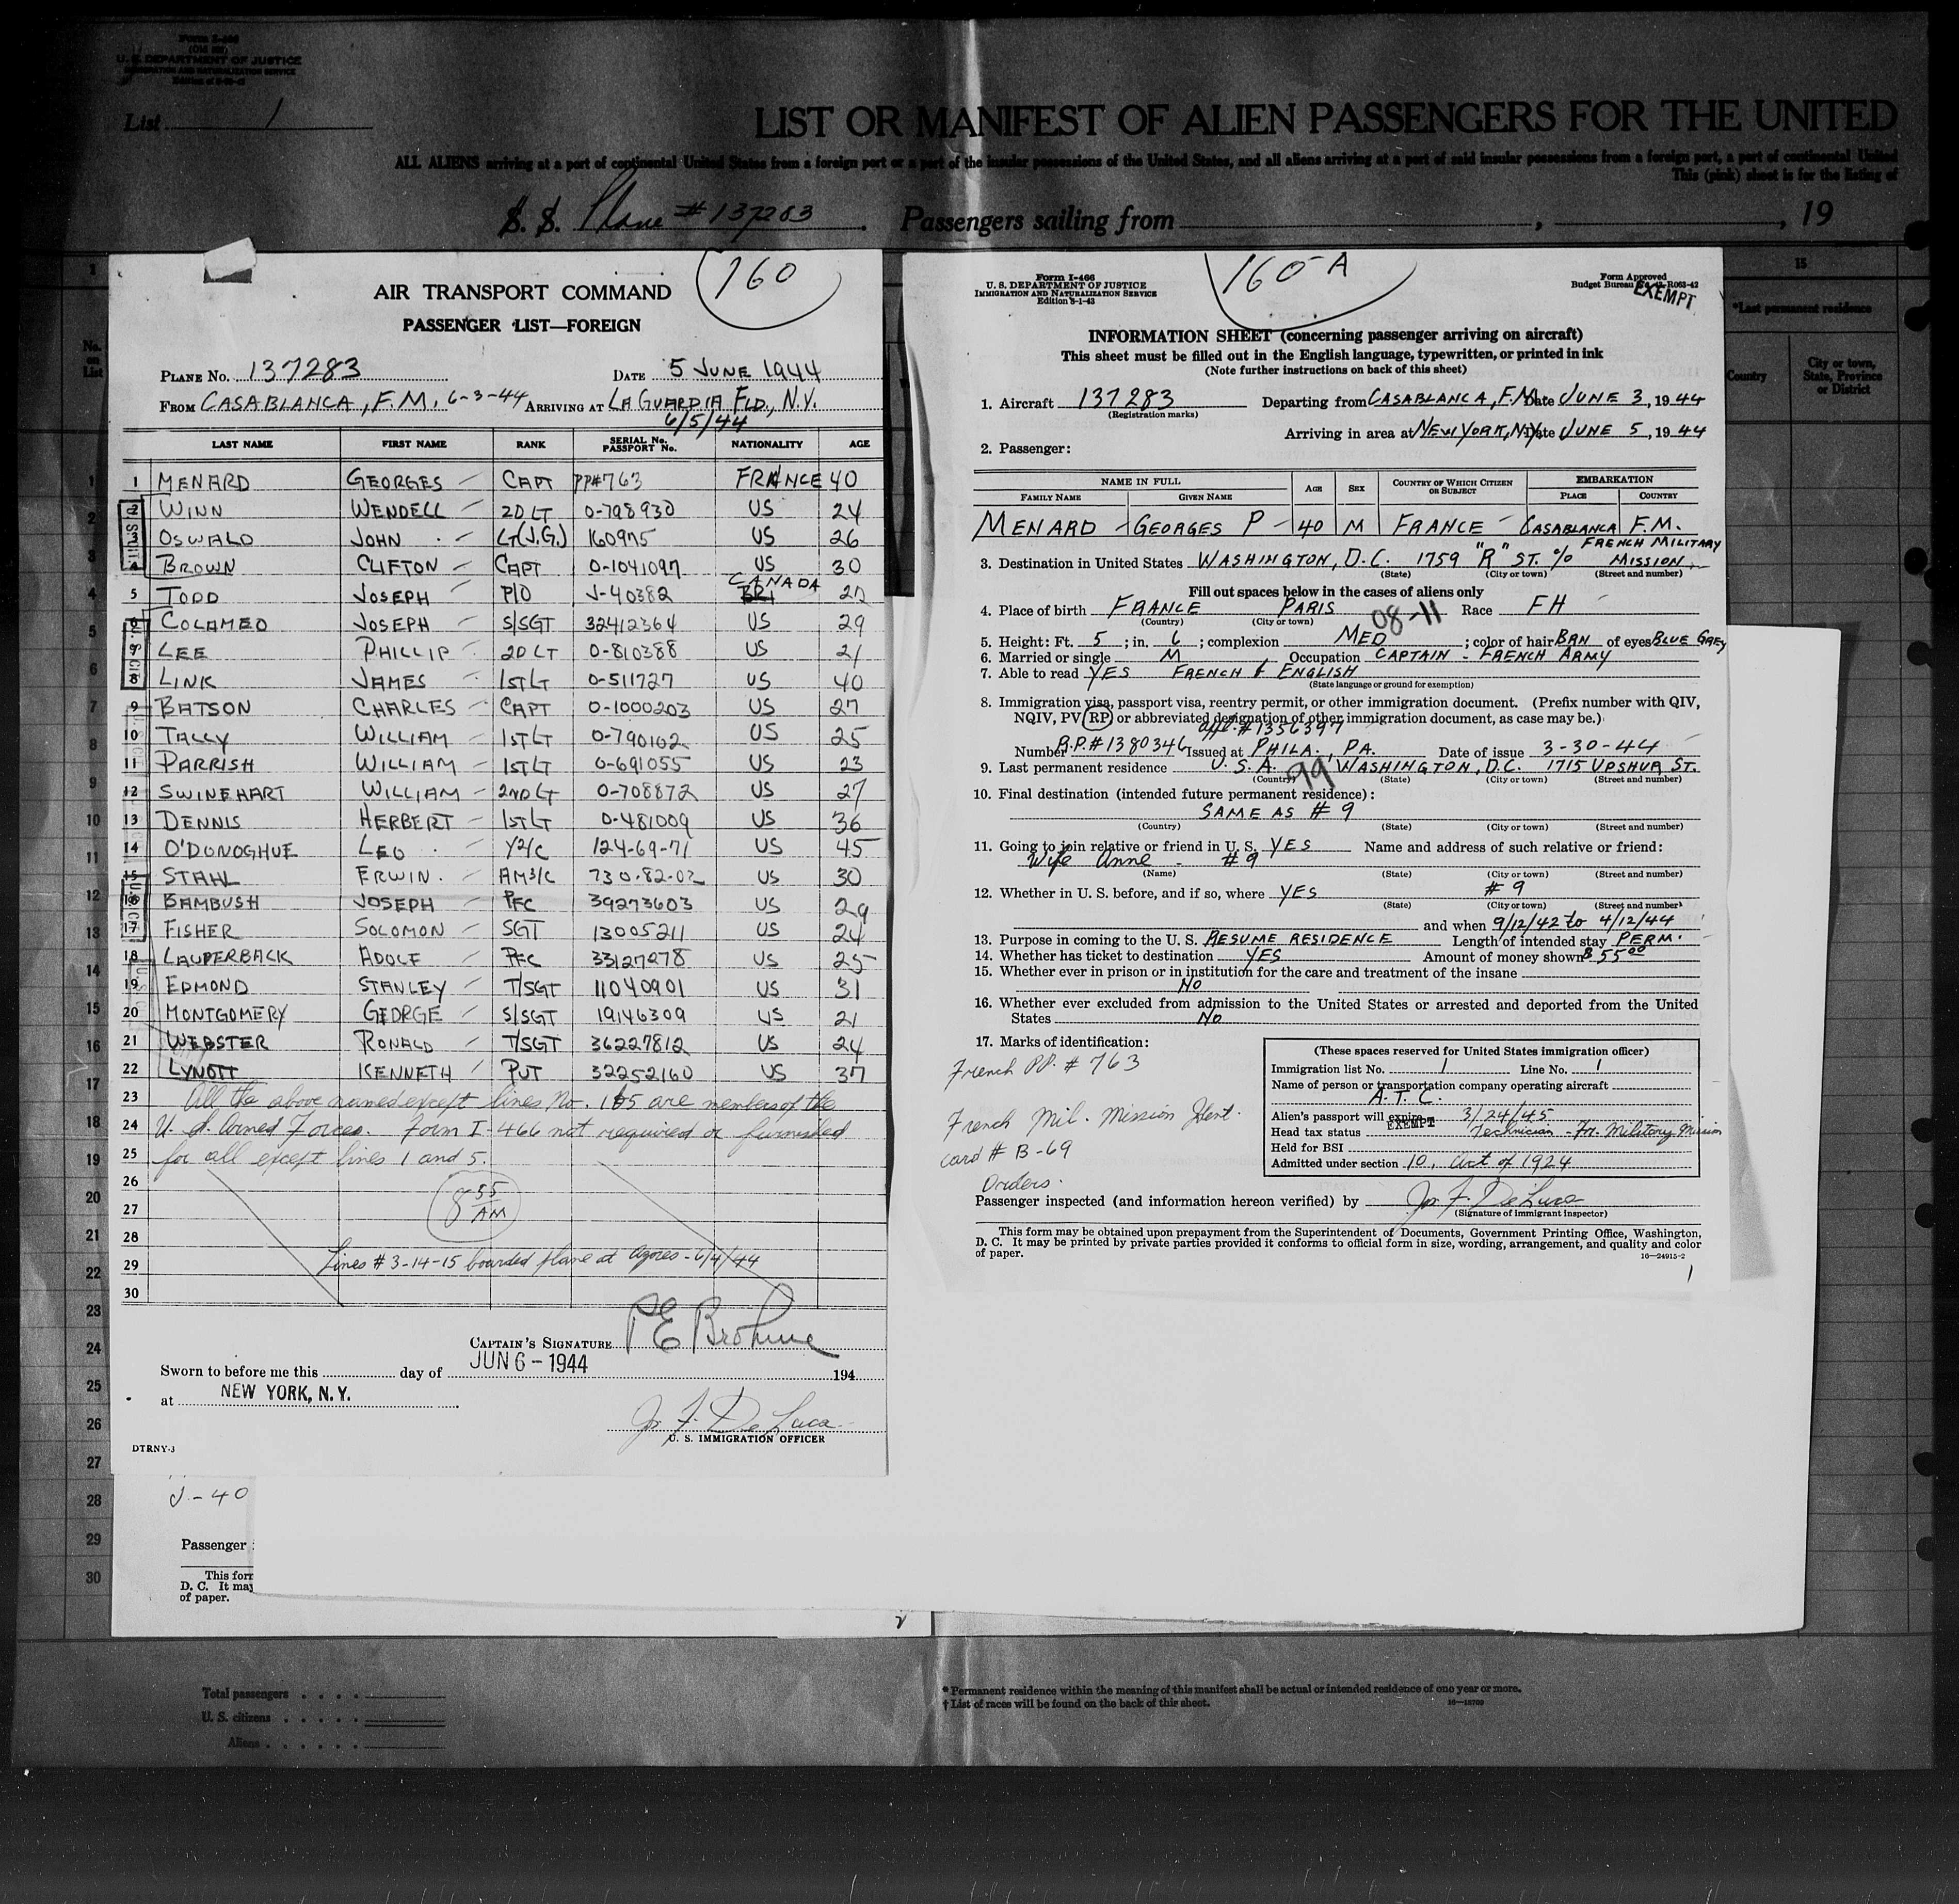 Form I-466
(Old 500)
U. S. DEPARTMENT OF JUSTICE
IMMIGRATION AND NATURALIZATION SERVICE
List 1
LIST OR MANIFEST OF ALIEN PASSENGERS FOR THE UNITED
ALL ALIENS arriving at a port of continental United States from a foreign port or a port of the insular possessions of the United States, and all aliens arriving at a port of said insular possessions from a foreign port, a port of continental United
This (pink) sheet is for the listing of
S. S. Plane # 137283. Passengers sailing from , , 19
160
AIR TRANSPORT COMMAND
PASSENGER LIST—FOREIGN
PLANE NO. 137283 DATE 5 JUNE 1944
FROM CASABLANCA, F.M. 6-3-44 ARRIVING AT LA GUARDIA FLD., N.Y.
6/5/44
LAST NAME FIRST NAME RANK SERIAL No. PASSPORT No. NATIONALITY AGE
1 MENARD GEORGES CAPT PP#763 FRANCE 40
2 WINN WENDELL 2D LT 0-798930 US 24
3 OSWALD JOHN LT(J.G.) 160975 US 26
4 BROWN CLIFTON CAPT 0-1041097 US 30
5 TODD JOSEPH P/O J-40382 BRI CANADA 27
6 COLAMEO JOSEPH S/SGT 32412364 US 29
7 LEE PHILLIP 2D LT 0-810388 US 21
8 LINK JAMES 1ST LT 0-511727 US 40
9 BATSON CHARLES CAPT 0-1000203 US 27
10 TALLY WILLIAM 1ST LT 0-790162 US 25
11 PARRISH WILLIAM 1ST LT 0-691055 US 23
12 SWINEHART WILLIAM 2ND LT 0-708872 US 27
13 DENNIS HERBERT 1ST LT 0-481009 US 36
14 O'DONOGHUE LEO Y2/C 124-69-71 US 45
15 STAHL ERWIN AM3/C 730-82-02 US 30
16 BAMBUSH JOSEPH PFC 39273603 US 29
17 FISHER SOLOMON SGT 13005211 US 24
18 LAUDERBACK ADOLF PFC 33127278 US 25
19 EDMOND STANLEY T/SGT 11040901 US 31
20 MONTGOMERY GEORGE S/SGT 19146309 US 21
21 WEBSTER RONALD T/SGT 36227812 US 24
22 LYNOTT KENNETH PVT 32252160 US 37
23 All the above named except lines No. 1&5 are members of the
24 U. S. Armed Forces. Form I-466 not required or furnished
25 for all except lines 1 and 5.
26
27 8 55 AM
28
29 Lines # 3-14-15 boarded plane at Azores - 6/4/44
30
CAPTAIN'S SIGNATURE P E Brohme
Sworn to before me this day of JUN 6 - 1944 194
at NEW YORK, N. Y.
Jos F. De Luca
U. S. IMMIGRATION OFFICER
DTRNY-3
J-40
Passenger
This form
D. C. It may
of paper.
2
160-A
Form I-466
U. S. DEPARTMENT OF JUSTICE
IMMIGRATION AND NATURALIZATION SERVICE
Edition 8-1-43
Form Approved
Budget Bureau No. 43-R063-42
EXEMPT
INFORMATION SHEET (concerning passenger arriving on aircraft)
This sheet must be filled out in the English language, typewritten, or printed in ink
(Note further instructions on back of this sheet)
1. Aircraft 137283 Departing from CASABLANCA, F.M. Date JUNE 3, 1944
(Registration marks)
Arriving in area at NEW YORK, N.Y. Date JUNE 5, 1944
2. Passenger:
NAME IN FULL AGE SEX COUNTRY OF WHICH CITIZEN OR SUBJECT EMBARKATION
FAMILY NAME GIVEN NAME PLACE COUNTRY
MENARD GEORGES P 40 M FRANCE CASABLANCA F.M.
3. Destination in United States WASHINGTON, D.C. 1759 "R" ST. % FRENCH MILITARY MISSION
(State) (City or town) (Street and number)
Fill out spaces below in the cases of aliens only
4. Place of birth FRANCE PARIS 08-11 Race FH
(Country) (City or town)
5. Height: Ft. 5; in. 6; complexion MED; color of hair BRN of eyes BLUE GREY
6. Married or single M Occupation CAPTAIN - FRENCH ARMY
7. Able to read YES FRENCH & ENGLISH
(State language or ground for exemption)
8. Immigration visa, passport visa, reentry permit, or other immigration document. (Prefix number with QIV,
NQIV, PV, RP, or abbreviated designation of other immigration document, as case may be.)
appl. # 1356397
Number R.P.# 1380346 Issued at PHILA., PA. Date of issue 3-30-44
9. Last permanent residence U.S.A. 99 WASHINGTON, D.C. 1715 UPSHUR ST.
(Country) (State) (City or town) (Street and number)
10. Final destination (intended future permanent residence):
SAME AS # 9
(Country) (State) (City or town) (Street and number)
11. Going to join relative or friend in U. S. YES Name and address of such relative or friend:
Wife Anne - # 9
(Name) (State) (City or town) (Street and number)
12. Whether in U. S. before, and if so, where YES # 9
(State) (City or town) (Street and number)
and when 9/12/42 to 4/12/44
13. Purpose in coming to the U. S. RESUME RESIDENCE Length of intended stay PERM.
14. Whether has ticket to destination YES Amount of money shown $ 55 00
15. Whether ever in prison or in institution for the care and treatment of the insane
No
16. Whether ever excluded from admission to the United States or arrested and deported from the United
States No
17. Marks of identification:
French PP. # 763
French Mil. Mission Ident.
card # B-69
Orders.
(These spaces reserved for United States immigration officer)
Immigration list No. 1 Line No. 1
Name of person or transportation company operating aircraft
A.T.C.
Alien's passport will expire 3/24/45
Head tax status EXEMPT Technician - Fr. Military Mission
Held for BSI
Admitted under section 10, Act of 1924
Passenger inspected (and information hereon verified) by Jos F. De Luca
(Signature of immigrant inspector)
This form may be obtained upon prepayment from the Superintendent of Documents, Government Printing Office, Washington,
D. C. It may be printed by private parties provided it conforms to official form in size, wording, arrangement, and quality and color
of paper. 16—24915-2
1
15
*Last permanent residence
Country City or town, State, Province or District
No. on List
Total passengers
U. S. citizens
Aliens
* Permanent residence within the meaning of this manifest shall be actual or intended residence of one year or more.
† List of races will be found on the back of this sheet.